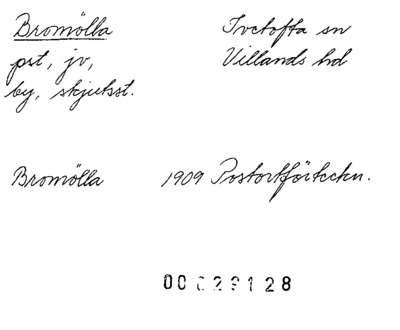 Bromölla Ivetofta sn
pst, jv, Villands hd
by, skjutsst.
Bromölla 1909 Postortförteckn.
00029128